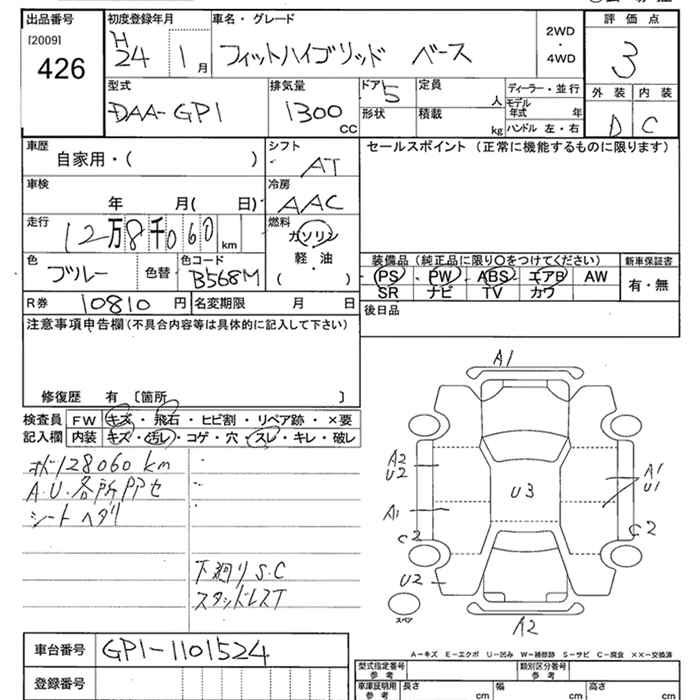 出品番号
[2009]
426
初度登録年月
H
24 1 月
車名・グレード
フィットハイブリッド ベース
2WD
・
4WD
評価点
3
外装 内装
D C
型式
DAA-GP1
排気量
1300
CC
ドア 5
形状
定員
人
積載
kg
ディーラー・並行
モデル
年式 年
ハンドル 左・右
車歴
自家用・( )
シフト
AT
車検
年 月( 日)
冷房
AAC
走行
12万8千060 km
燃料
ガソリン
軽・油
( )
色
ブルー
色替
色コード
B568M
R券 10810 円
名変期限 月 日
セールスポイント (正常に機能するものに限ります)
装備品(純正品に限り〇をつけてください)
PS PW ABS エアB AW
SR ナビ TV カワ
新車保証書
有・無
後日品
注意事項申告欄(不具合内容等は具体的に記入して下さい)
修復歴 有 〔箇所 〕
検査員
記入欄
FW キズ・飛石・ヒビ割・リペア跡・×要
内装 キズ・汚レ・コゲ・穴・スレ・キレ・破レ
128060 km
A.U.各所
シートヘタリ
下廻りS.C
スタッドレスT
A1
A2
U2
A1
C2
U2
U3
A1
U1
C2
A2
スペア
A-キズ E-エクボ U-凹み W-補修跡 S-サビ C-腐食 ××-交換済
車台番号
GP1-1101524
登録番号
型式指定番号
参考
類別区分番号
参考
車庫証明用
参考
長さ cm
幅 cm
高さ cm